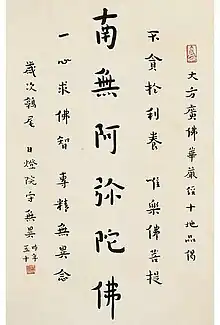 大方廣佛華嚴經十地品偈
不貪於利養 唯樂佛菩提
南無阿彌陀佛
一心求佛智 專精無異念
歲次鶉尾 日燈院沙門
時年五十